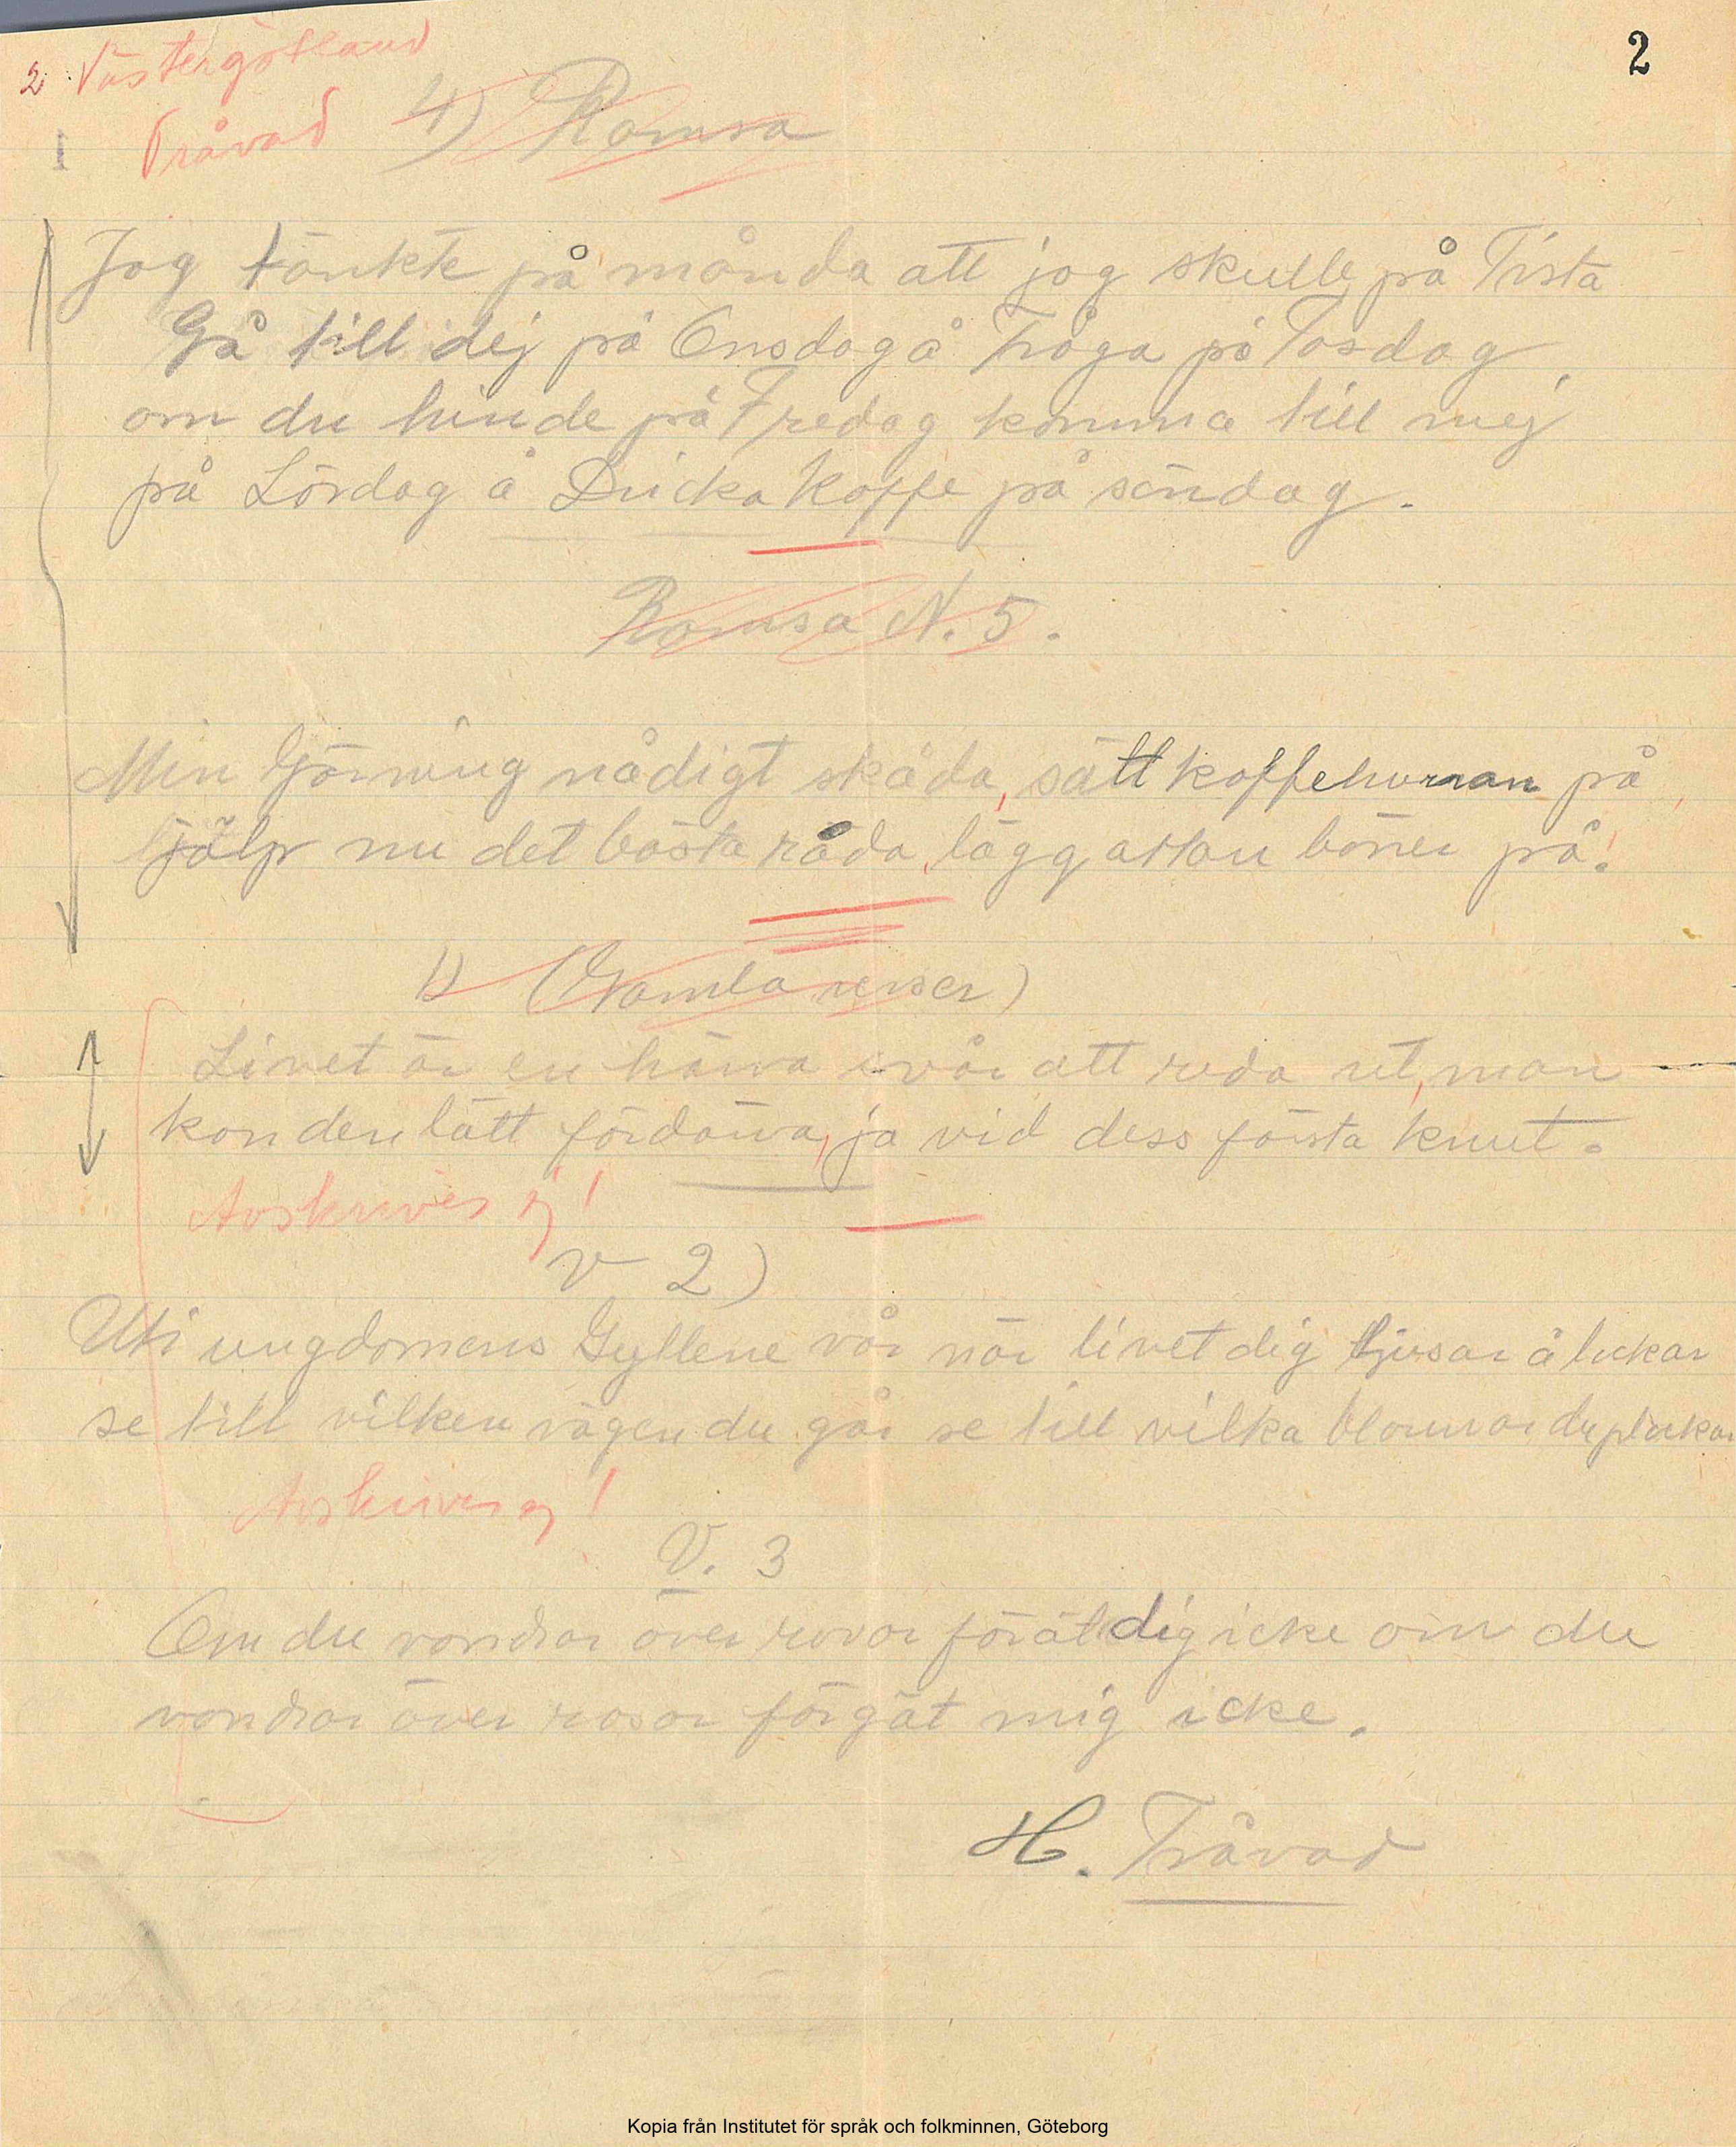 2
2 Västergötland
Tråvad 4) Ramsa
Jag tänkte på månda att jag skulle på Tista
Gå till dej på Onsdag å Fråga på Tosdag
om du hinde på Fredag komma till mej
på Lördag å Dricka Kaffe på söndag.
Ramsa N. 5.
Min Gjörning nådigt skåda, sätt kaffehurran på
hjälp nu det bästa råda, lägg attan böner på!
1) (Gamla verser)
Livet är en härva svår att reda ut, man
kan den lätt fördärva, ja vid dess första knut.
Avskrives ej!
v 2)
Uti ungdomens Gyllene vår när livet dig tjusar å lockar
se till vilken vägen du går se till vilka blommor du plockar
Avskrives ej!
V. 3
Om du vandrar över rovor förät dig icke om du
vandrar över rosor förgät mig icke.
H. Tråvad
Kopia från Institutet för språk och folkminnen, Göteborg